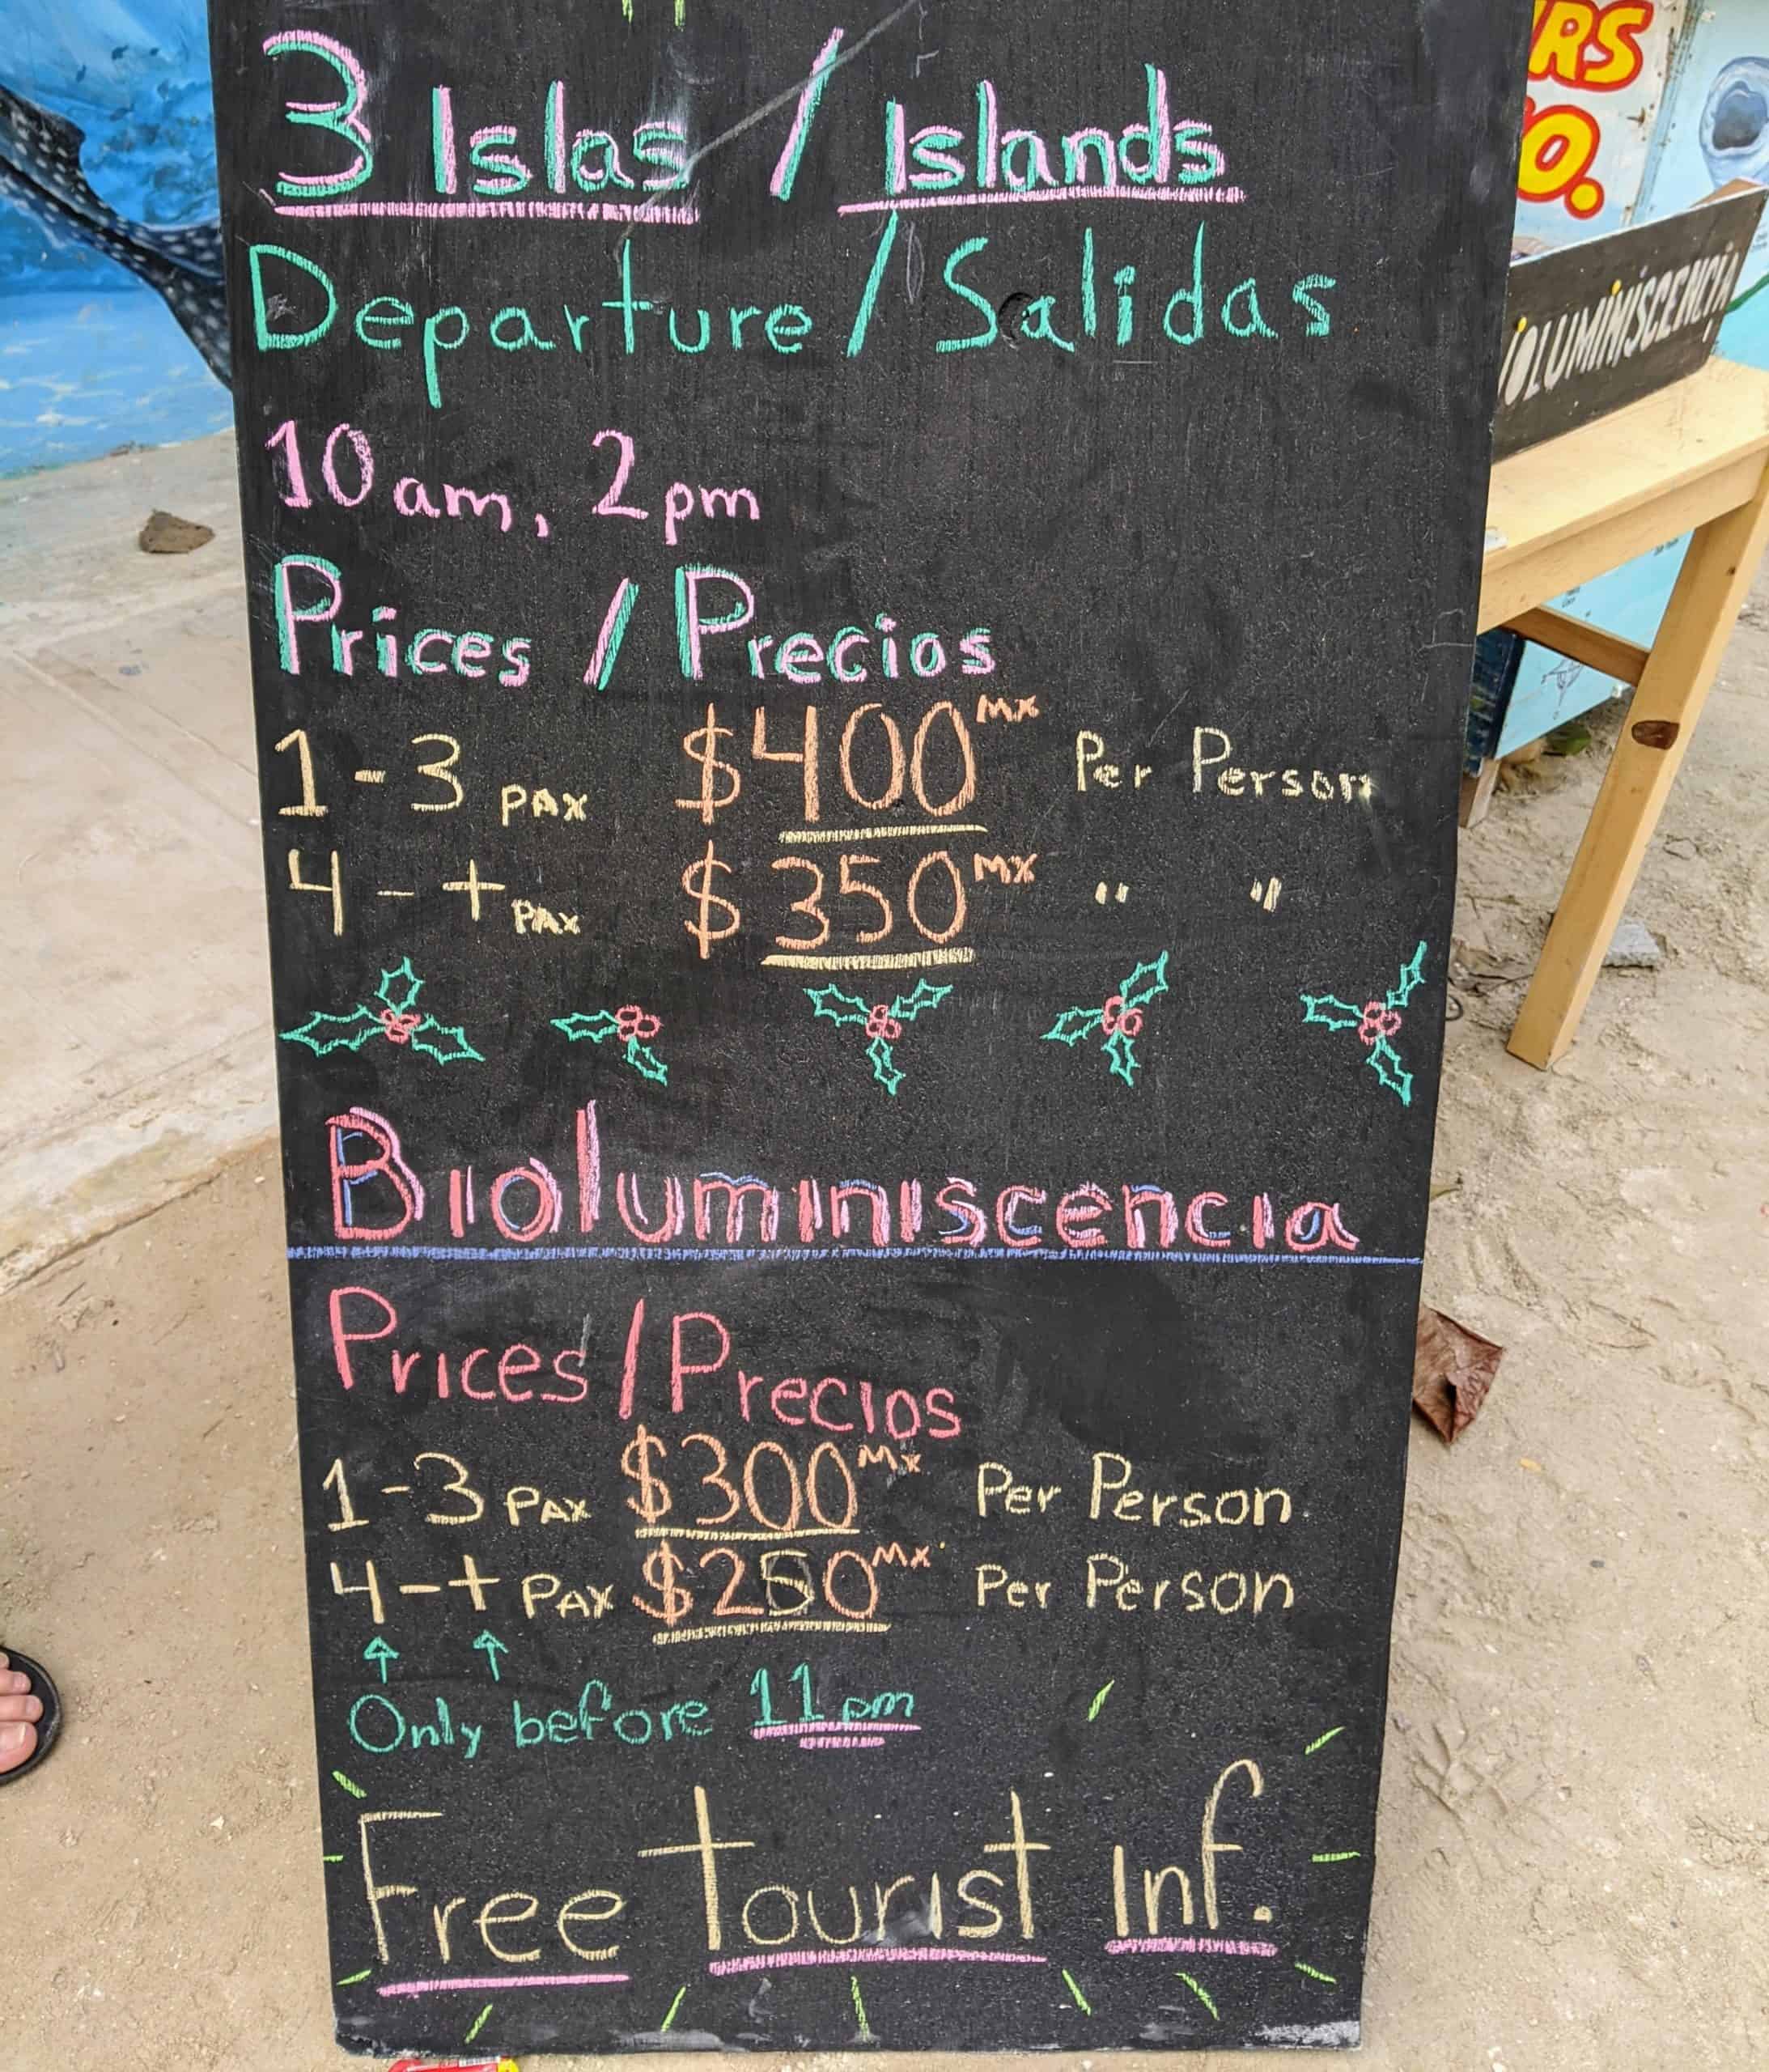 3 Islas / Islands
Departure / Salidas
10 am, 2 pm
Prices / Precios
1 - 3 PAX $400 MX Per Person
4 - + PAX $350 MX " "
Bioluminiscencia
Prices / Precios
1 - 3 PAX $300 MX Per Person
4 - + PAX $250 MX Per Person
↑ ↑
Only before 11 pm
Free tourist Inf.
IOLUMINISCENCIA
RS
O.